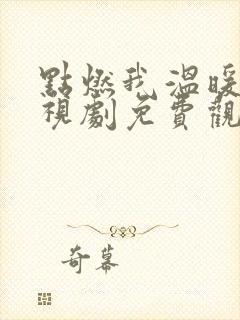 點燃我,溫暖
視劇免費觀
奇幕